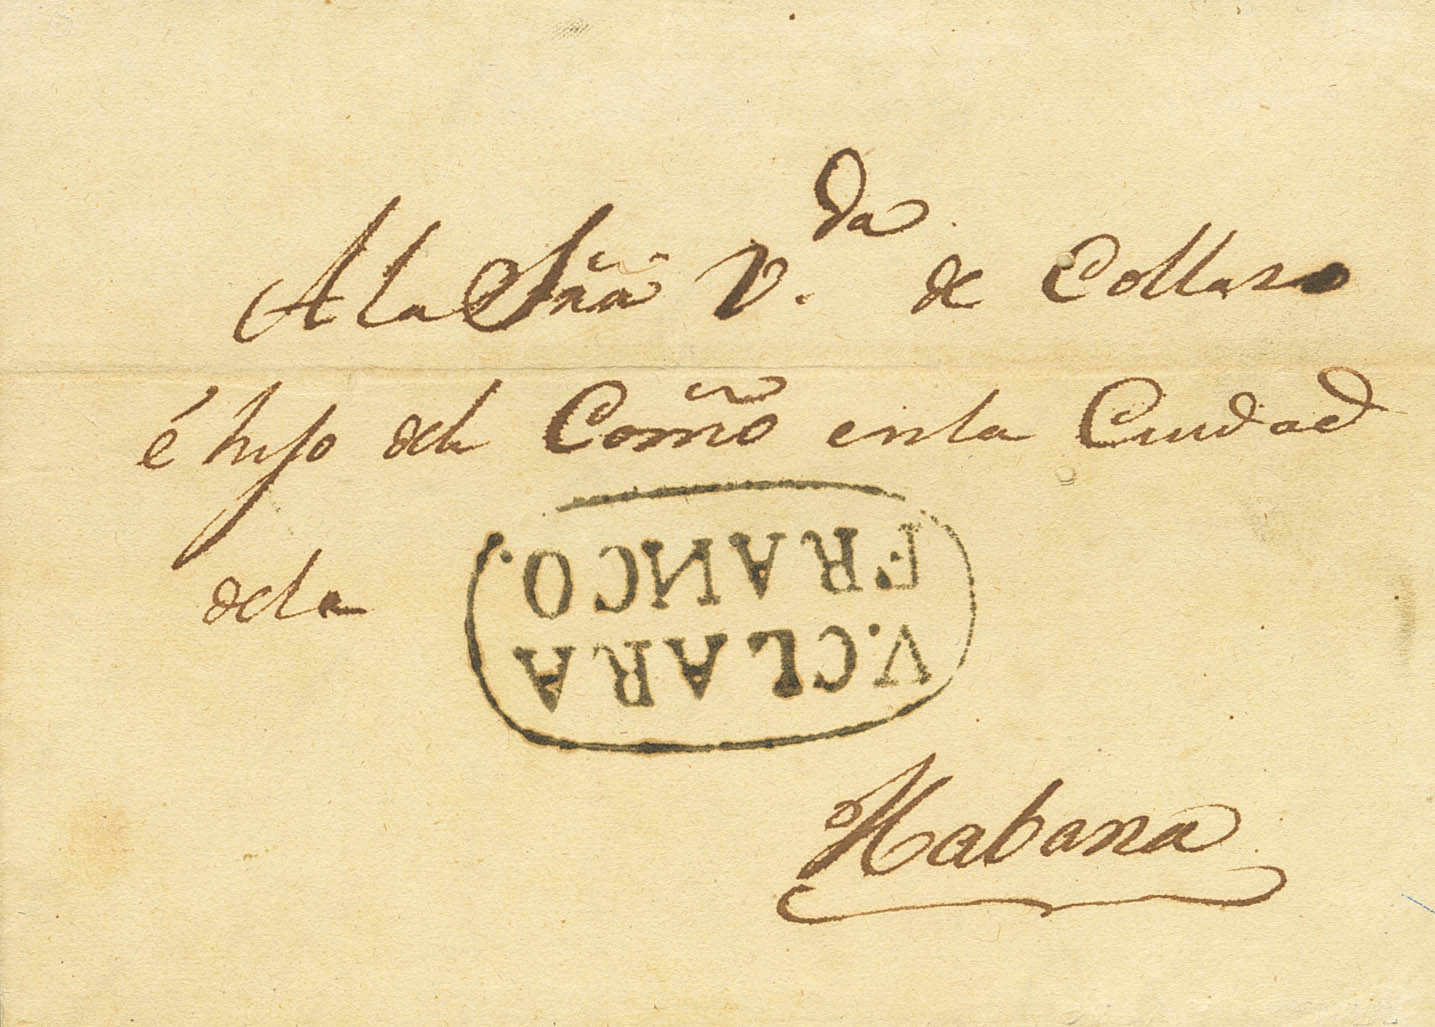 A la Sñra V.da de Collazo
é hijo del Comño en la Ciudad
de la
V.CLARA
FRANCO.
Habana